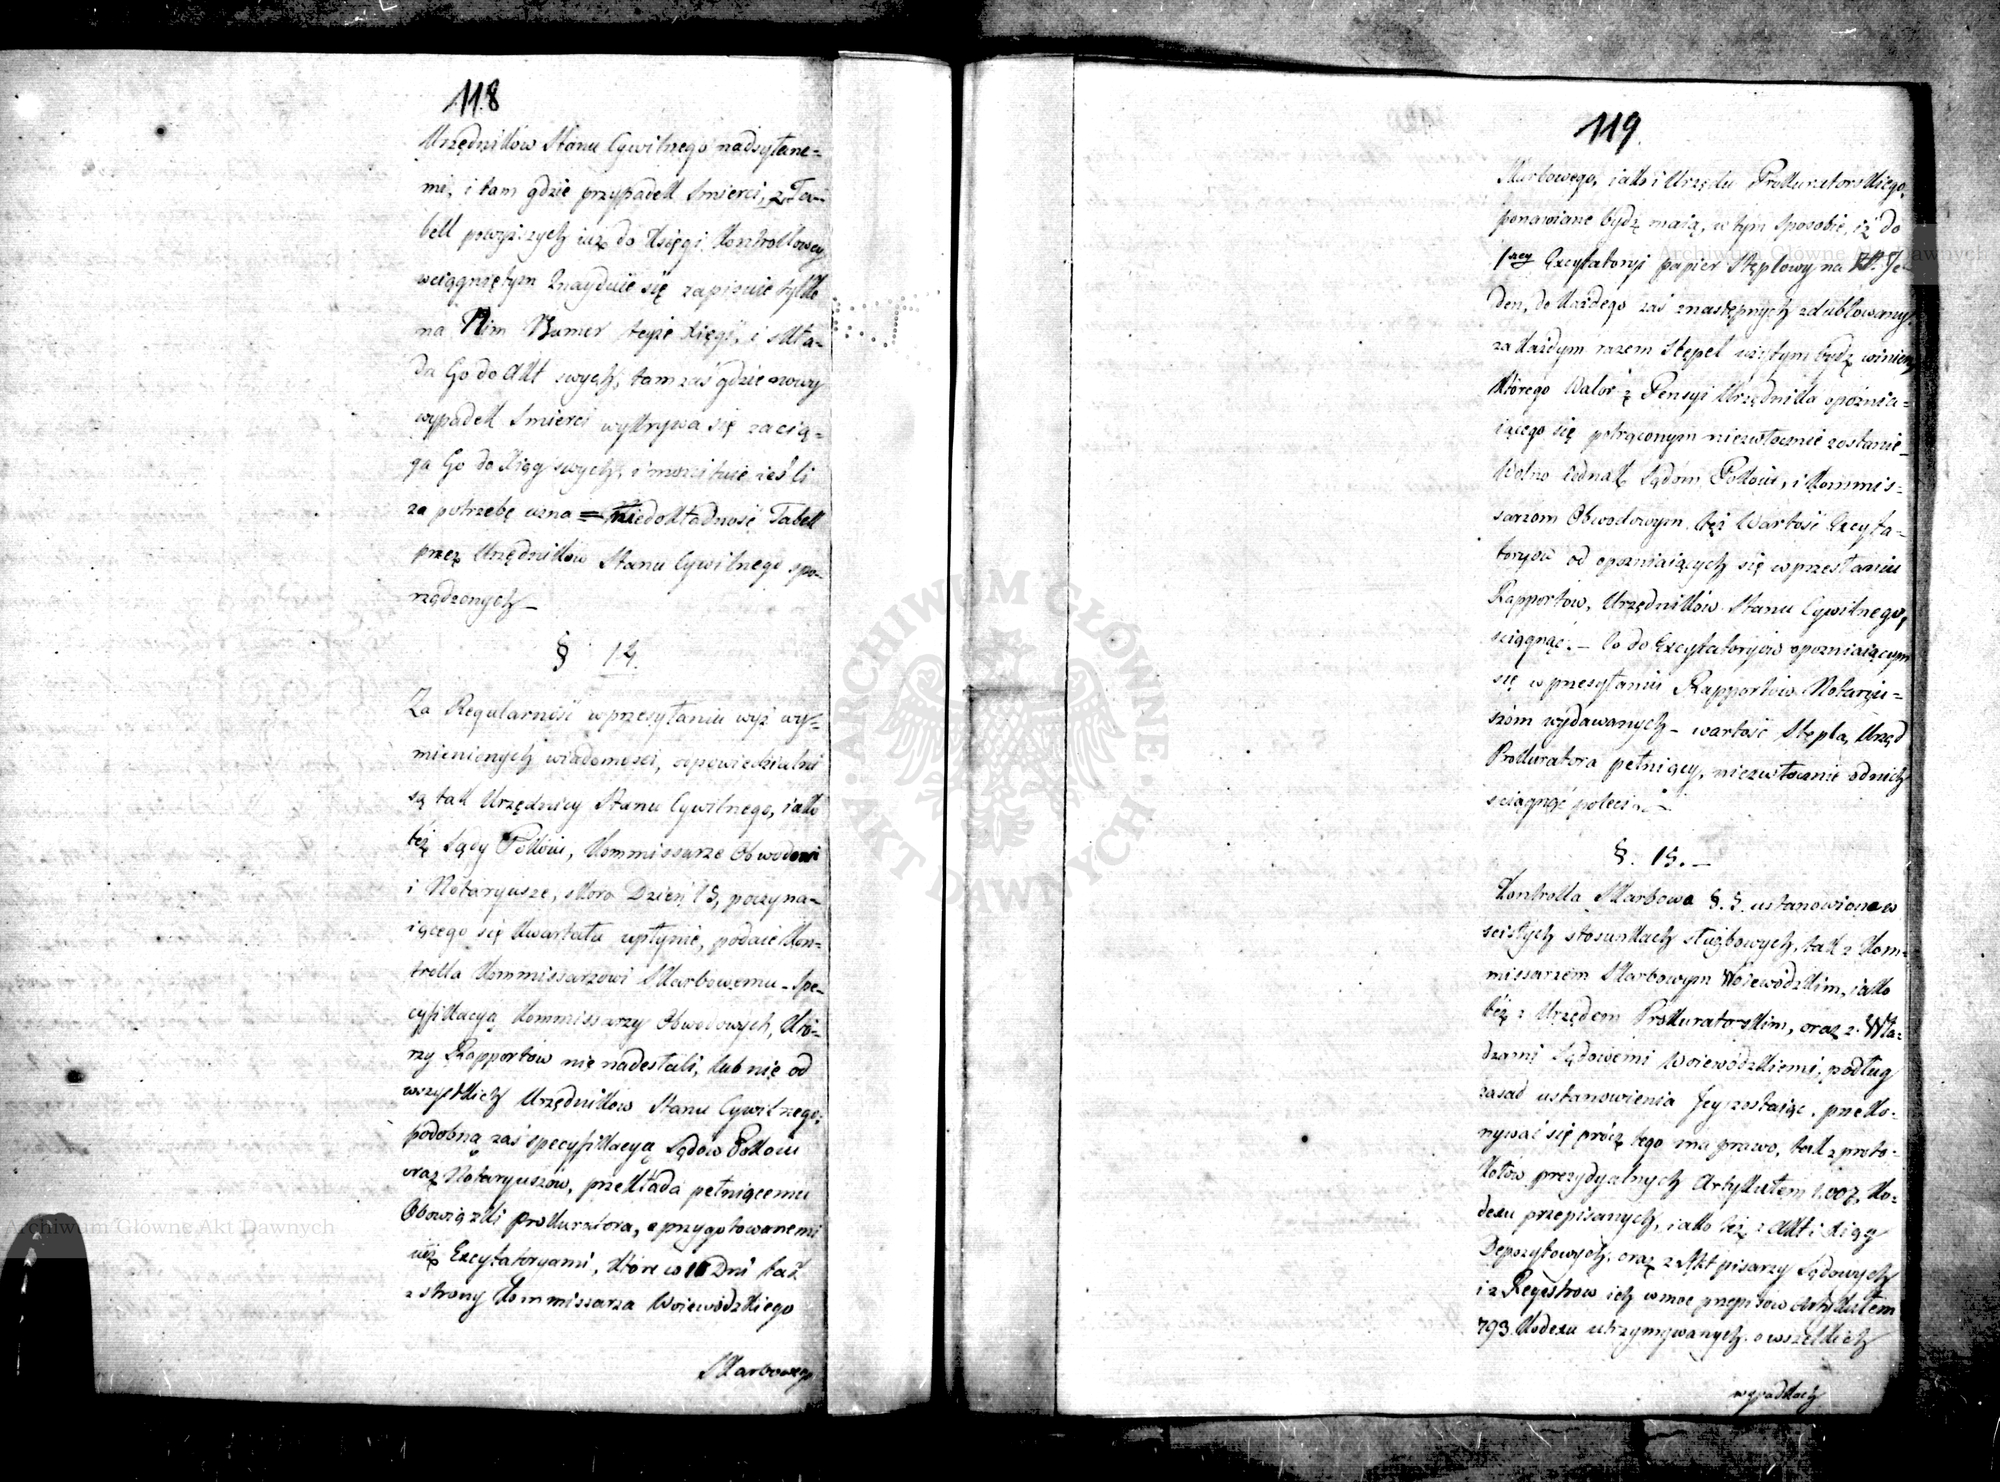 118
Urzędników Stanu Cywilnego nadsyłane=
mi, i tam gdzie przypadek Smierci, z Ta=
bell powyższych iuż do Księgi Kontrollowey
wciągniętym Znayduie się zapisuie tylko
na Nim Numer teyże Xięgi, i skła=
da Go do Akt swych, tam zaś gdzie nowy
wypadek Smierci wykrywa się zacią=
ga Go do Xiąg swych, i ieśli
za potrzebę uzna niedokładność Tabell
przez Urzędników Stanu Cywilnego spo=
rządzonych –
§ 14.
Za Regularność w przesyłaniu wyż wy=
mienionych wiadomości, odpowiedzialni
są tak Urzędnicy Stanu Cywilnego, iako
też Sądy Pokoiu, Kommissarze Obwodowi
i Notaryusze, skoro Dzień 15, poczyna=
iącego się Kwartału upłynie, podaie Kon=
trolla Kommissarzowi Skarbowemu – Spe=
cyfikacyą Kommissarzy Obwodowych, Któ=
rzy Rapportów nie nadesłali, lub nie od
wszystkich Urzędników Stanu Cywilnego;
podobną zaś specyfikacyą Sądów Pokoiu
oraz Notaryuszów, przekłada pełniącemu
Obowiązki Prokuratora, z przygotowanemi
iuż Excytatoryami, które w 10 Dni tak
z strony Kommissarza Woiewódzkiego
Skarbowego
119.
Skarbowego, iako i Urzędu Prokuratorskiego,
ponawiane bydź maią, w tym sposobie, iż do
1szey Excytatoryi papier Stęplowy na Zł. Je=
den, do Każdego zaś z następnych zdublowany
za każdym razem Stępel użytym bydź winien,
Którego Walor z Pensyi Urzędnika opóźnia=
iącego się potrąconym niezwłocznie zostanie –
Wolno iednak Sądom Pokoiu, i Kommis=
sarzom Obwodowym, też Wartość Excyta=
toryów od opozniaiących się w przesłaniu
Rapportów, Urzędników Stanu Cywilnego,
sciągnąć. – Co do Excytatoryów opozniaiącym
się w przesyłaniu Rapportów Notaryu=
szom wydawanych – wartość Stępla, Urząd
Prokuratora pełniący, niezwłocznie od nich
sciągnąć poleci. –
§. 15. –
Kontrolla Skarbowa §. 5. ustanowiona w
scisłych stosunkach służbowych, tak z Kom=
missarzem Skarbowym Woiewódzkim, iako
też z Urzędem Prokuratorskim, oraz z Wła=
dzami Sądowemi Woiewódzkiemi, podług
zasad ustanowienia Jey zostaiąc, przeko=
nywać się prócz tego ma prawo, tak z proto=
kołów prezydyalnych Artykułem 1.007. Ko=
dexu przepisanych, iako też z Akt i Xiąg
Depozytowych, oraz z Akt pisarzy Sądowych
i z Regestrów ich w moc przepisów Artykułem
793. Kodexu utrzymywanych, o wszelkich
wypadkach
Archiwum Główne Akt Dawnych
Archiwum Główne Akt Dawnych
ARCHIWUM GŁÓWNE · AKT DAWNYCH ·